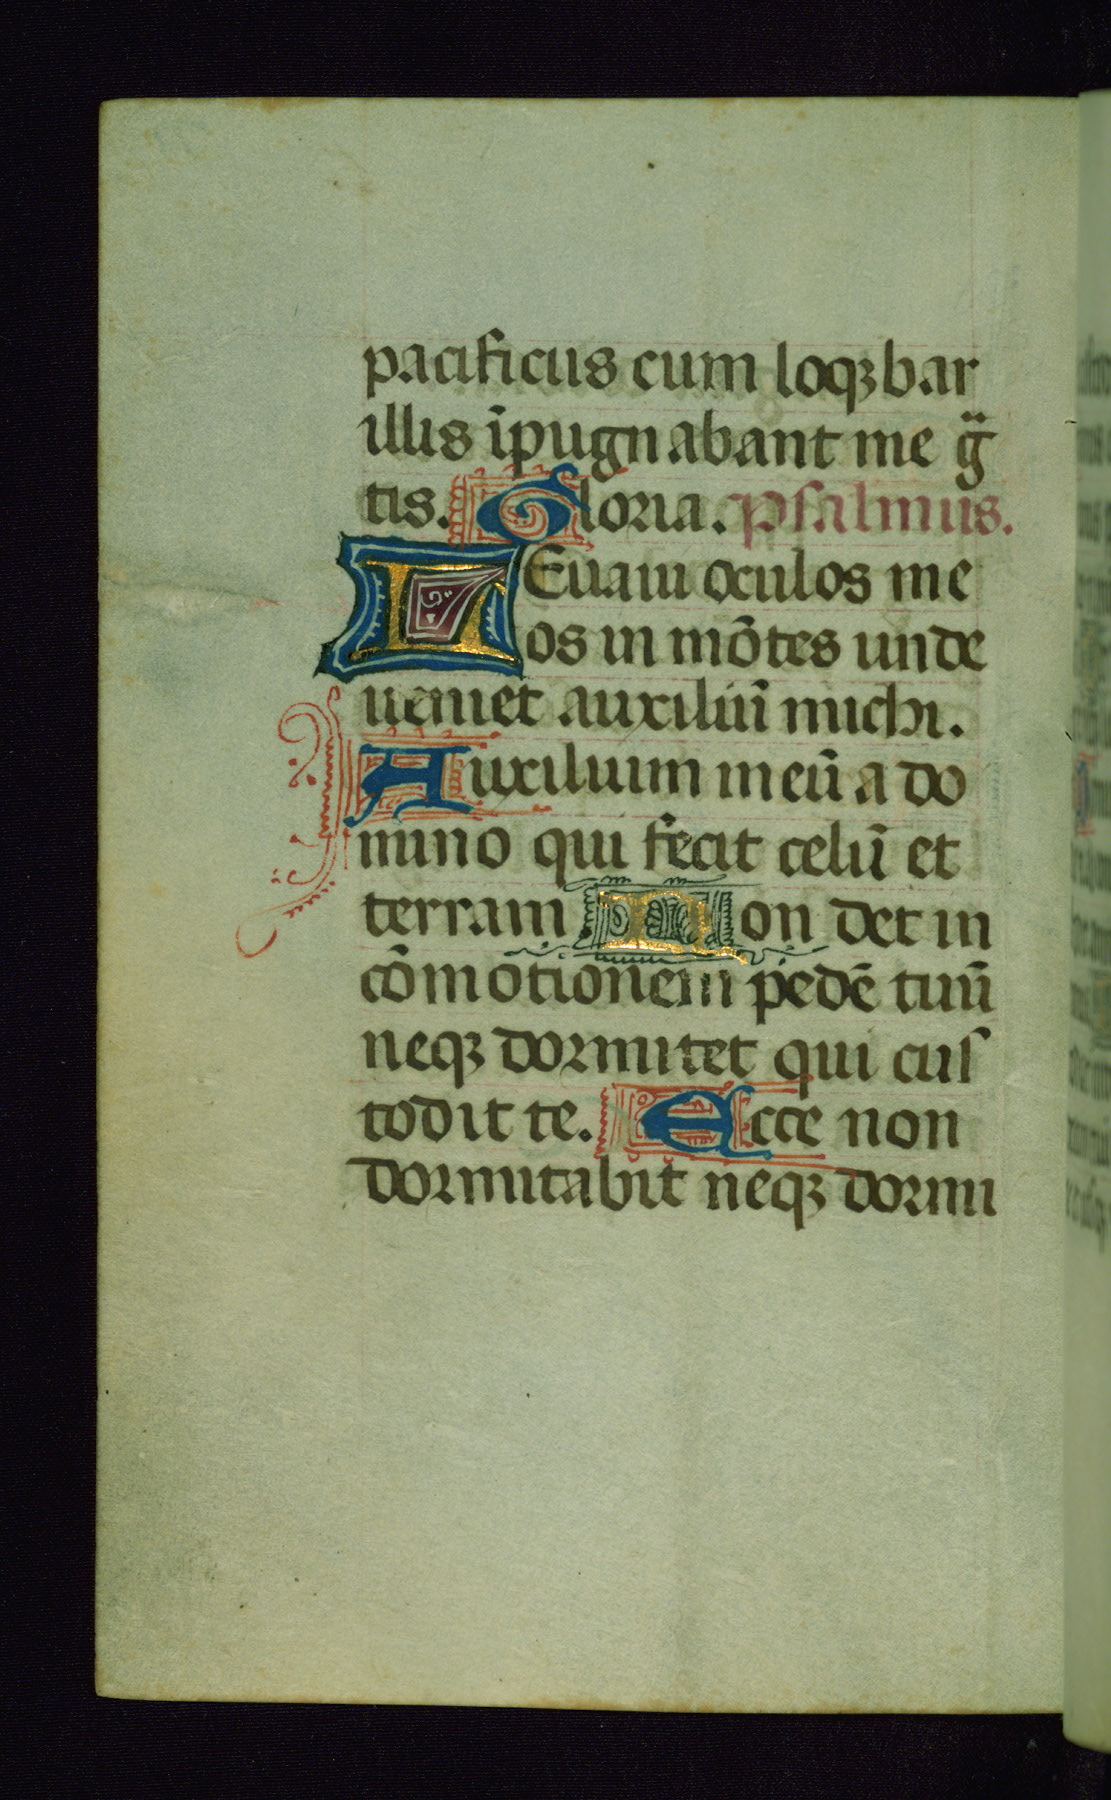 pacificus cum loqꝫbar
illis īpugnabant me g̈
tis. Gloria. psalmus.
LEuaui oculos me
os in mōtes unde
ueniet auxiliū michi.
Auxilium meū a do
mino qui fecit celū et
terram. Non det in
cōmotionem pedē tuū
neqꝫ dormitet qui cus
todit te. Ecce non
dormitabit neqꝫ dormi